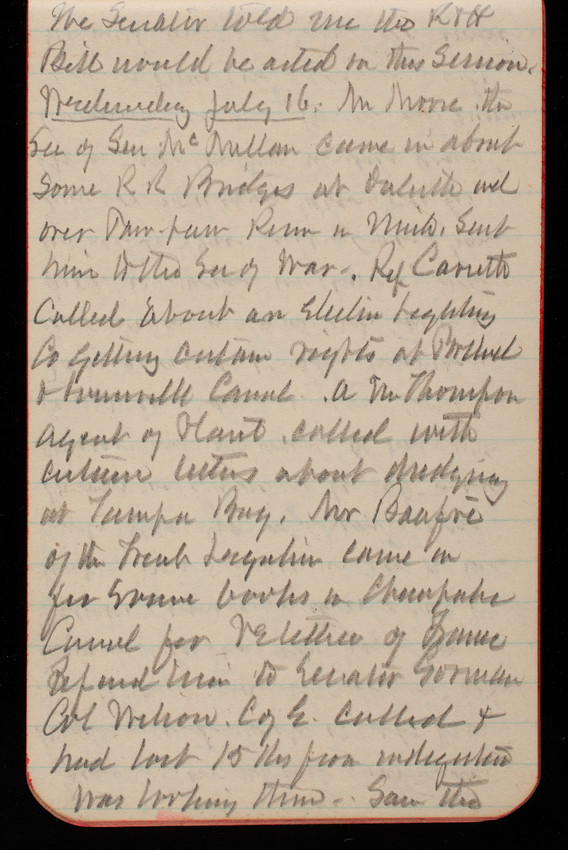 The Senator told me the R & H
Bill would be acted on this Session.
Wednesday July 16. Mr Moore the
Sec of Sen McMillan came in about
Some R R Bridges at Duluth and
over Paw-paw River in Mich. Sent
him to the Sec of War. Rep Caruth
Called about an Electric Lighting
Co getting certain rights at
& Louisville Canal. A Mr Thompson
agent of Plant called with
certain letters about dredging
at Tampa Bay. Mr
of the French Legation came in
for Some books on Chesapeake
Canal for
to Senator Gorman
Col Wilson. C of E. called &
had lost 15 lbs from indigestion
Was looking thin. Saw the